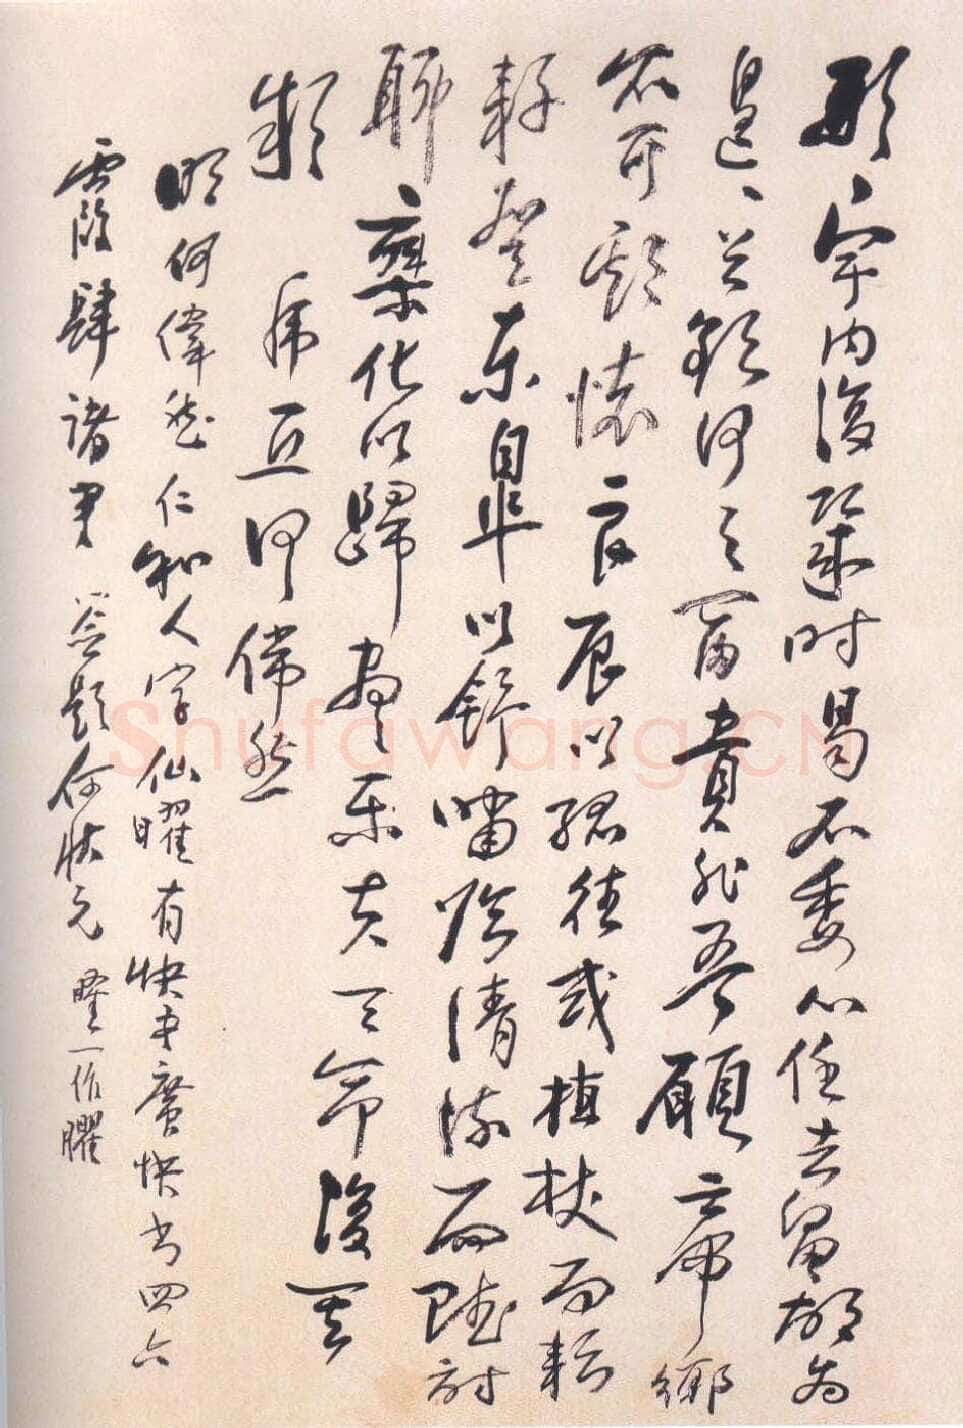 形、宇内復幾时曷不委心任去留胡为
遑、兮欲何之富貴非吾願帝鄉
不可期懷良辰以孤往或植杖而耘
耔登東皋以舒嘯臨清流而賦詩
聊乘化以歸盡樂夫天命復奚
疑 何偉然
明何偉然仁和人字仙曜有快书廣快书四六
霞肆諸书 签題何状元 一作臞
Shufawang.CN